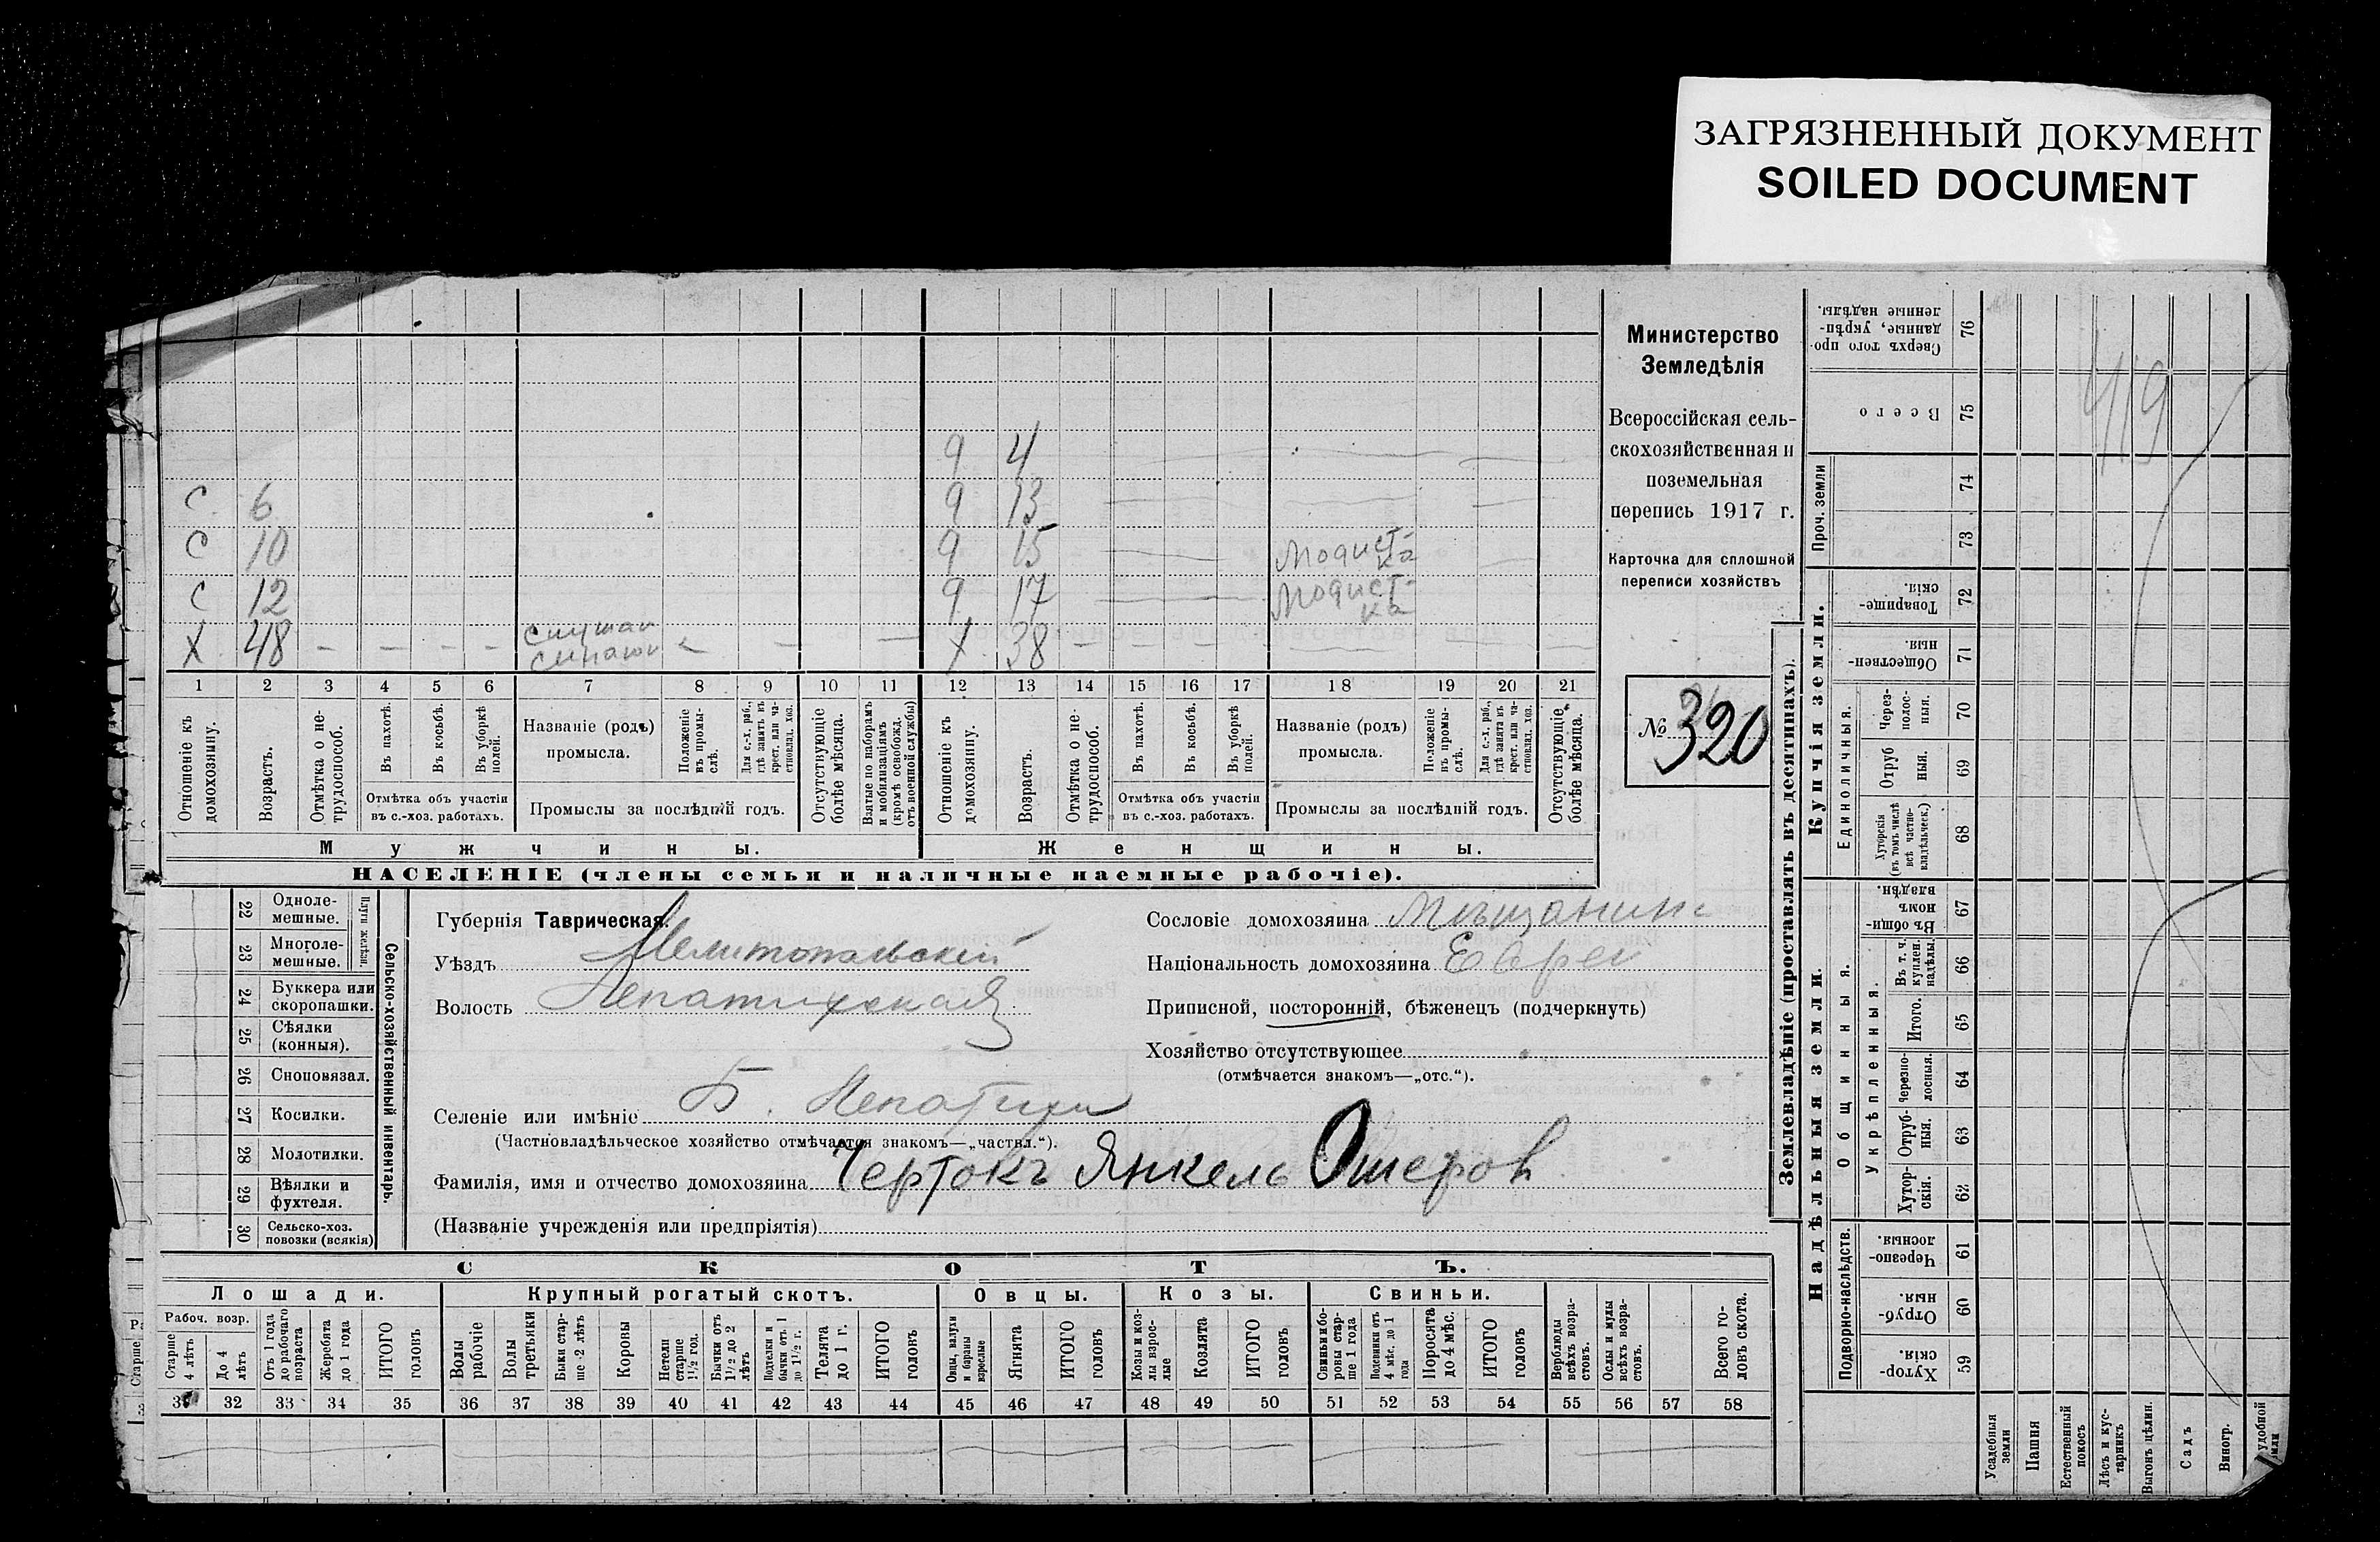 ЗАГРЯЗНЕННЫЙ ДОКУМЕНТ
SOILED DOCUMENT
Министерство
Земледѣлія
Всероссійская сель-
скохозяйственная и
поземельная
перепись 1917 г.
Карточка для сплошной
переписи хозяйствъ
№ 320
9 4
С 6 9 13
С 10 9 15 Модист-
ка
С 12 9 17 Модист-
ка
Х 48 Х 38
1 2 3 4 5 6 7 8 9 10 11 12 13 14 15 16 17 18 19 20 21
Отношеніе къ домохозяину.
Возрастъ.
Отмѣтка о не-трудоспособ.
Въ пахотѣ.
Въ косьбѣ.
Въ уборкѣ полей.
Отмѣтка объ участіи
въ с.-хоз. работахъ.
Названіе (родъ)
промысла.
Положеніе въ промы-слѣ.
Для с.-х. раб., гдѣ занятъ въ крест. или ча-стновлад. хоз.
Промыслы за послѣдній годъ.
Отсутствующіе болѣе мѣсяца.
Взятые по наборамъ и мобилизаціямъ (кромѣ освобожд. отъ военной службы)
Отношеніе къ домохозяину.
Возрастъ.
Отмѣтка о не-трудоспособ.
Въ пахотѣ.
Въ косьбѣ.
Въ уборкѣ полей.
Отмѣтка объ участіи
въ с.-хоз. работахъ.
Названіе (родъ)
промысла.
Положеніе въ промы-слѣ.
Для с.-х. раб., гдѣ занятъ въ крест. или ча-стновлад. хоз.
Промыслы за послѣдній годъ.
Отсутствующіе болѣе мѣсяца.
Мужчины.
Женщины.
НАСЕЛЕНІЕ (члены семьи и наличные наемные рабочіе).
Сельско-хозяйственный инвентарь.
Плуги желѣзн.
22 Одноле-мешные.
23 Многоле-мешные.
24 Буккера или скоропашки.
25 Сѣялки (конныя).
26 Сноповязал.
27 Косилки.
28 Молотилки.
29 Вѣялки и фухтеля.
30 Сельско-хоз. повозки (всякія)
Губернія Таврическая.
Уѣздъ Мелитопольскій
Волость Лепатихская
Селеніе или имѣніе Б. Лепатиха
(Частновладѣльческое хозяйство отмѣчается знакомъ—„частвл.“).
Фамилія, имя и отчество домохозяина Чертокъ Янкель Ошеров
(Названіе учрежденія или предпріятія)
Сословіе домохозяина Мѣщанинъ
Національность домохозяина Еврей
Приписной, посторонній, бѣженецъ (подчеркнуть)
Хозяйство отсутствующее
(отмѣчается знакомъ—„отс.“).
СКОТЪ.
Лошади. Крупный рогатый скотъ. Овцы. Козы. Свиньи.
Рабоч. возр.
Старше 4 лѣтъ
До 4 лѣтъ
Отъ 1 года до рабочаго возраста
Жеребята до 1 года
ИТОГО головъ
Волы рабочіе
Волы третьяки
Быки стар-ше 2 лѣтъ
Коровы
Нетели старше 1½ год.
Бычки отъ 1½ до 2 лѣтъ
Подтелки и бычки отъ 1 до 1½ г.
Телята до 1 г.
ИТОГО головъ
Овцы, валухи и бараны взрослые
Ягнята
ИТОГО головъ
Козы и коз-лы взрос-лые
Козлята
ИТОГО головъ
Свиньи и бо-ровы стар-ше 1 года
Подсвинки отъ 4 мѣс. до 1 года
Поросята до 4 мѣс.
ИТОГО головъ
Верблюды всѣхъ возра-стовъ.
Ослы и мулы всѣхъ возра-стовъ.
Всего го-ловъ скота.
32 33 34 35 36 37 38 39 40 41 42 43 44 45 46 47 48 49 50 51 52 53 54 55 56 57 58
Землевладѣніе (проставлять въ десятинахъ).
Купчія земли.
Надѣльныя земли.
Сверхъ того про-данные, укрѣп-ленные надѣлы. 76
Всего 75
Проч. земли 74
73
Товарище-скія. 72
Обществен-ныя 71
Единоличныя.
Через-полос-ныя. 70
Отруб-ныя. 69
Хуторскія (въ томъ числѣ всѣ частно-владѣльческ.) 68
Общинныя.
Въ общин-номъ владѣн. 67
Укрѣпленныя.
Въ т. ч. куплен. надѣлы. 66
Итого. 65
Черезпо-лосныя. 64
Отруб-ныя. 63
Хутор-скія. 62
Подворно-наслѣдств.
Черезпо-лосныя. 61
Отруб-ныя. 60
Хутор-скія. 59
Усадебныя земли
Пашня
Естественный покосъ
Лѣсъ и кус-тарникъ
Выгонъ цѣлин.
Садъ
Виногр.
удобной
419